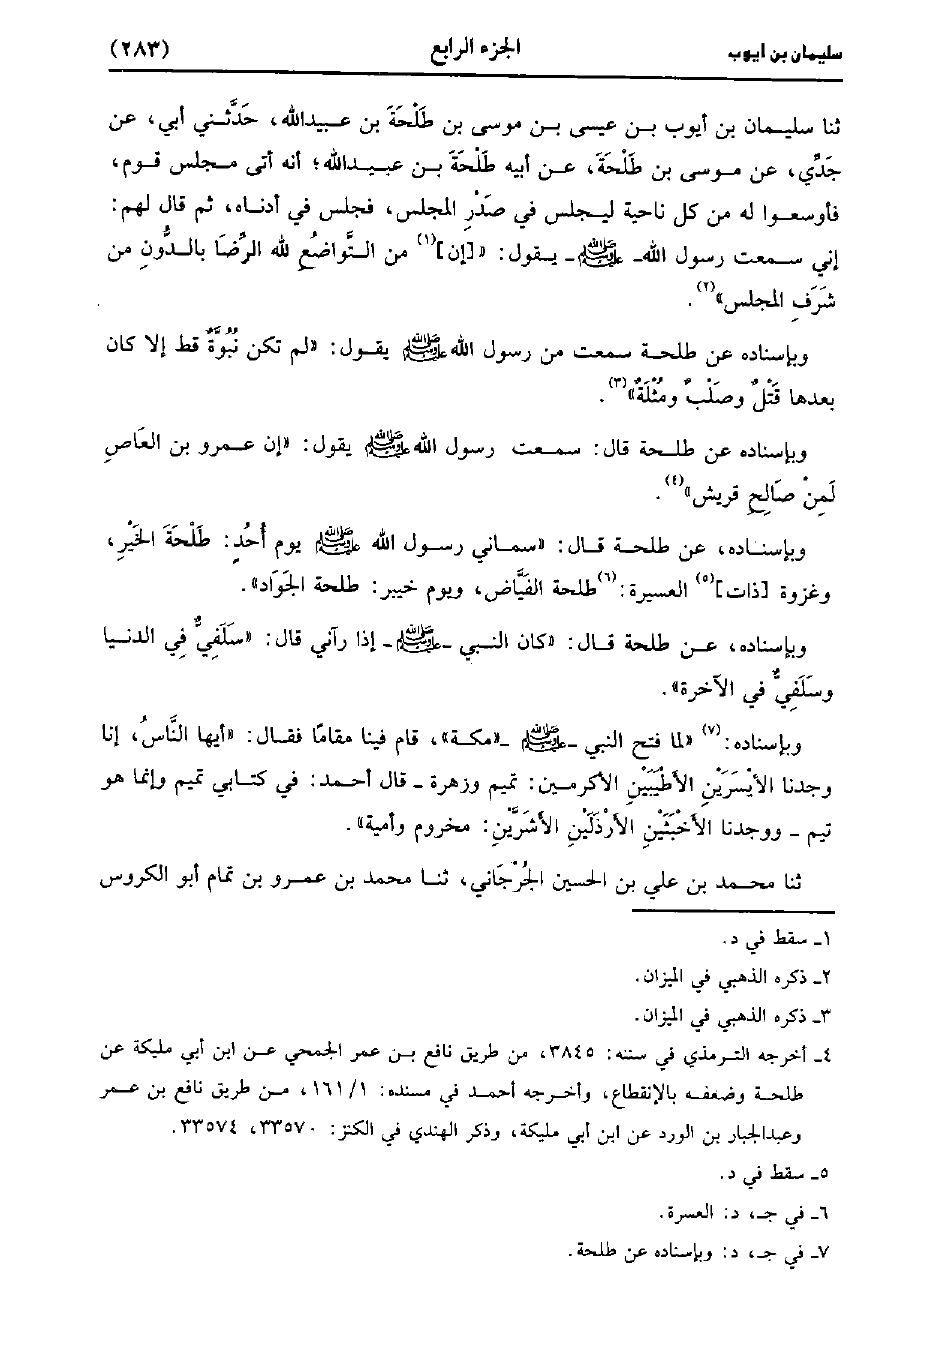 سليمان بن أيوب الجزء الرابع (٢٨٣)
ثنا سليمان بن أيوب بن عيسى بن موسى بن طَلْحَةَ بن عبيدالله، حَدَّثني أبي، عن
جَدِّي، عن موسى بن طَلْحَةَ، عن أبيه طَلْحَةَ بن عبيدالله؛ أنه أتى مجلس قوم،
فأوسعوا له من كل ناحية ليجلس في صَدْرِ المجلس، فجلس في أدناه، ثم قال لهم:
إني سمعت رسول الله- ﷺ- يقول: «[إن](١) من التَّواضُعِ لله الرِّضَا بالدُّونِ من
شَرَفِ المجلس»(٢).
وبإسناده عن طلحة سمعت من رسول الله ﷺ يقول: «لم تكن نُبُوَّةٌ قط إلا كان
بعدها قَتْلٌ وصَلْبٌ ومُثْلَةٌ»(٣).
وبإسناده عن طلحة قال: سمعت رسول الله ﷺ يقول: «إن عمرو بن العَاصِ
لَمِنْ صَالِحِ قريش»(٤).
وبإسناده، عن طلحة قال: «سماني رسول الله ﷺ يوم أُحُدٍ: طَلْحَةَ الخَيْرِ،
وغزوة [ذات](٥) العسيرة:(٦) طلحة الفَيَّاض، ويوم خيبر: طلحة الجَوَاد».
وبإسناده، عن طلحة قال: «كان النبي -ﷺ- إذا رآني قال: «سَلَفِيٌّ فِي الدنيا
وسَلَفِيٌّ في الآخرة».
وبإسناده:(٧) «لما فتح النبي -ﷺ -«مكة»، قام فينا مقامًا فقال: «أيها النَّاسُ، إنا
وجدنا الأَيْسَرَيْنِ الأَطْيَبَيْنِ الأكرمين: تميم وزهرة - قال أحمد: في كتابي تميم وإنما هو
تيم - ووجدنا الأَخْبَثَيْنِ الأَرْذَلَيْنِ الأَشَرَّيْنِ: مخزوم وأمية».
ثنا محمد بن علي بن الحسين الجُرْجَاني، ثنا محمد بن عمرو بن تمام أبو الكروس
١- سقط في د.
٢- ذكره الذهبي في الميزان.
٣- ذكره الذهبي في الميزان.
٤- أخرجه الترمذي في سننه: ٣٨٤٥، من طريق نافع بن عمر الجمحي عن ابن أبي مليكة عن
طلحة وضعفه بالإنقطاع، وأخرجه أحمد في مسنده: ١٦١/١، من طريق نافع بن عمر
وعبدالجبار بن الورد عن ابن أبي مليكة، وذكر الهندي في الكنز: ٣٣٥٧٠، ٣٣٥٧٤.
٥- سقط في د.
٦- في جـ، د: العسرة.
٧- في جـ، د: وبإسناده عن طلحة.